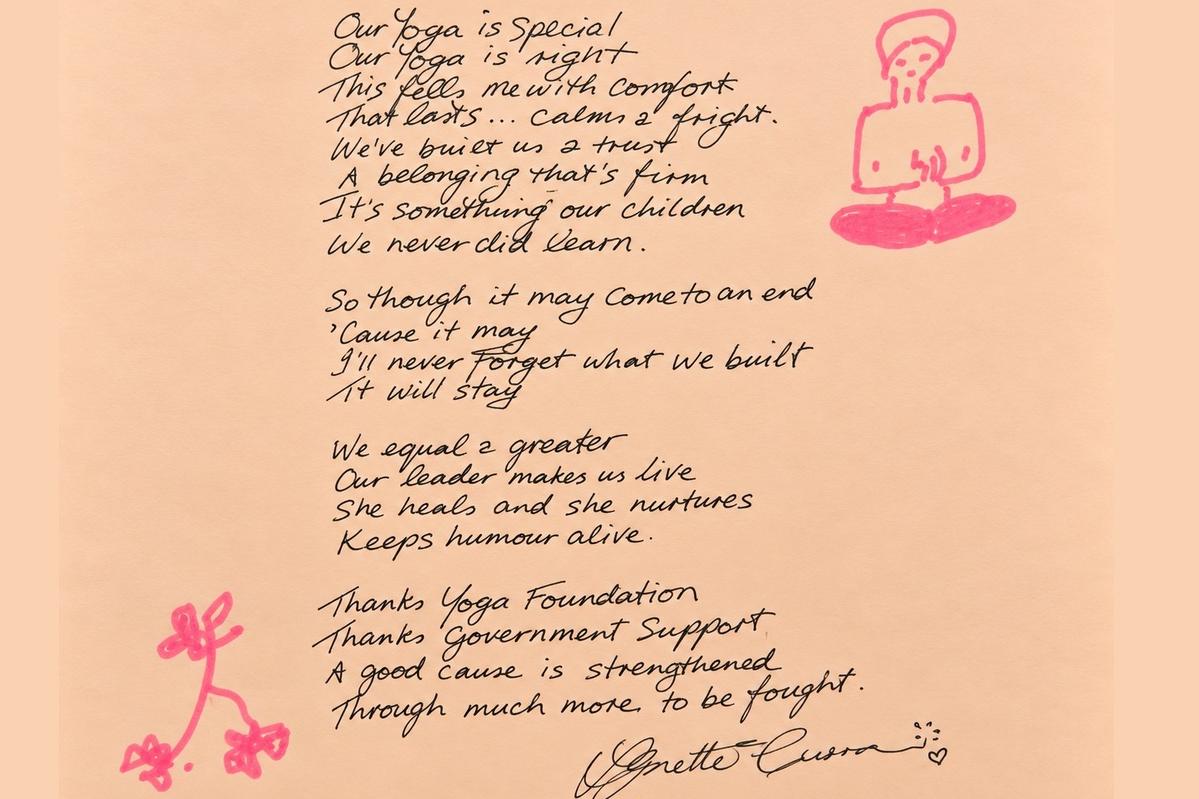 Our Yoga is Special
Our Yoga is right
This fells me with comfort
That lasts... calms a fright.
We've built us a trust
A belonging that's firm
It's something our children
We never did learn.
So though it may come to an end
'Cause it may
I'll never Forget what we built
It will stay
We equal a greater
Our leader makes us live
She heals and she nurtures
Keeps humour alive.
Thanks Yoga Foundation
Thanks Government Support
A good cause is strengthened
Through much more to be fought.